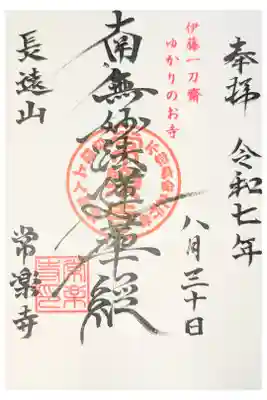 奉拝
令和七年
八月三十日
伊藤一刀齋
ゆかりのお寺
南無妙法蓮華經
長遠山
常楽寺